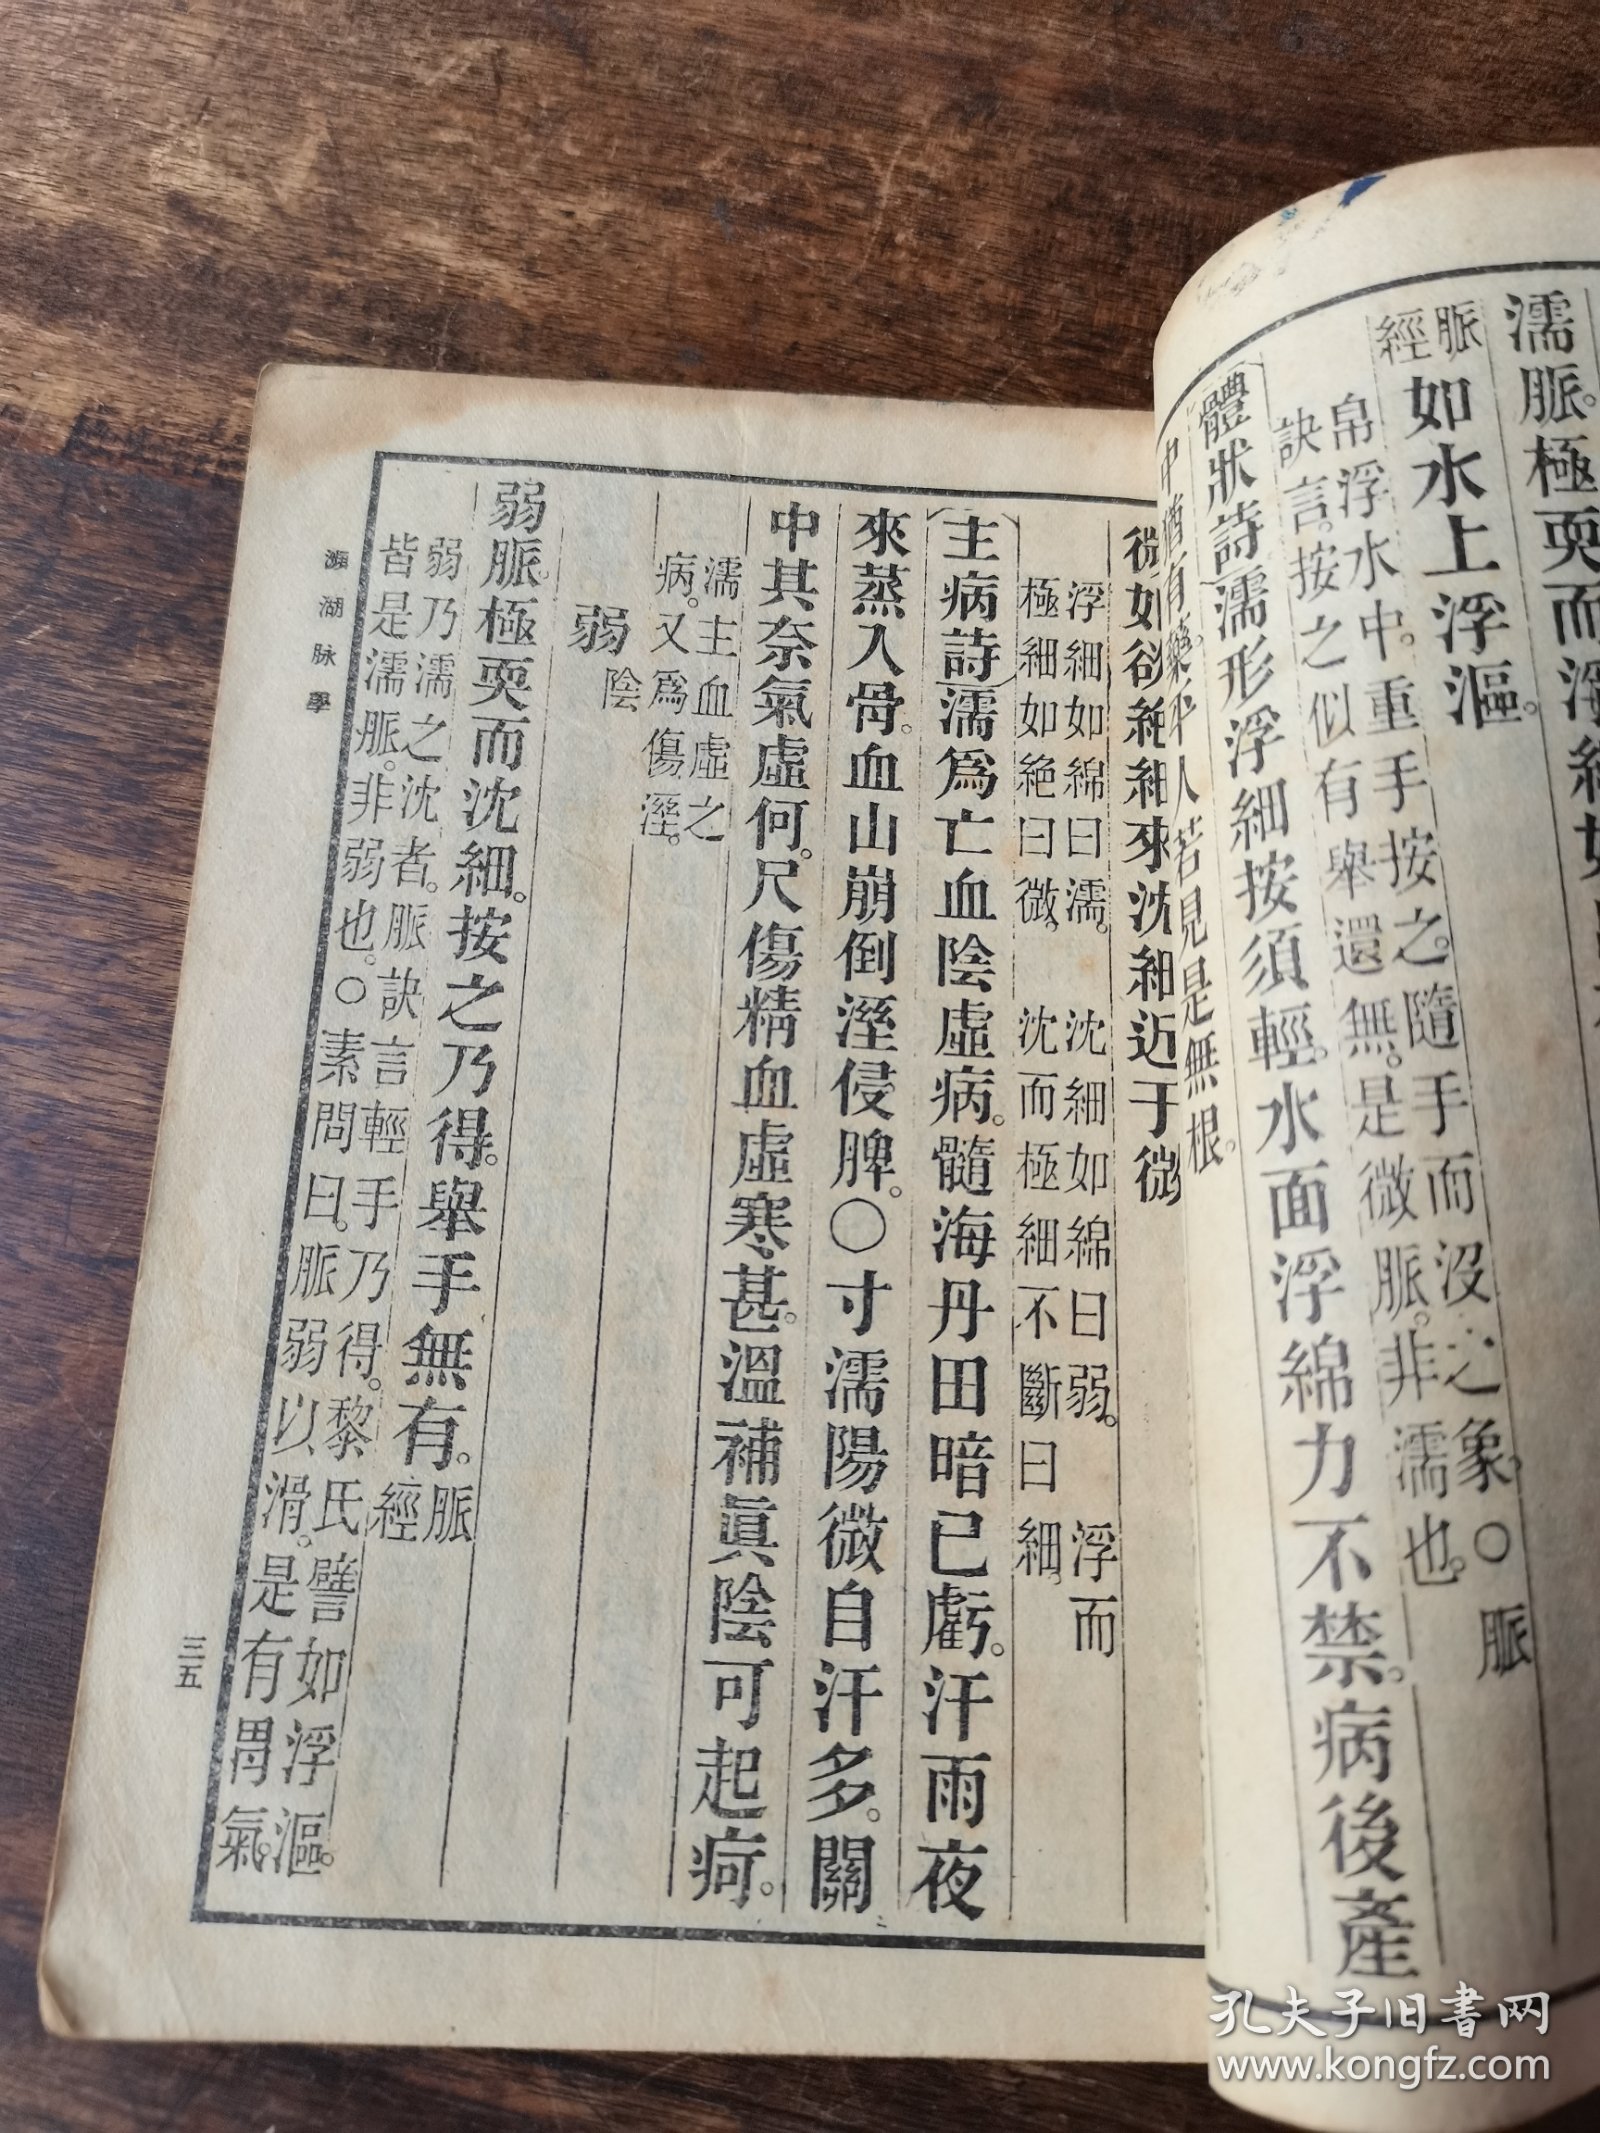 濡脈。極耎而浮細如
脈經
如水上浮漚。
帛浮水中。重手按之。隨手而沒之象。○脈
訣言。按之似有舉還無。是微脈。非濡也。
〔體狀詩〕濡形浮細按須輕。水面浮綿力不禁。病後產
中猶有藥。平人若見是無根。
微如欲絕細來沈細近于微
浮細如綿曰濡。沈細如綿曰弱。浮而
極細如絕曰微。沈而極細不斷曰細。
〔主病詩〕濡爲亡血陰虛病。髓海丹田暗已虧。汗雨夜
來蒸入骨。血山崩倒溼侵脾。○寸濡陽微自汗多。關
中其奈氣虛何。尺傷精血虛寒甚。溫補眞陰可起疴。
濡主血虛之
病。又爲傷溼。
弱陰
弱脈。極耎而沈細。按之乃得。舉手無有。脈經
弱乃濡之沈者。脈訣言輕手乃得。黎氏譬如浮漚。
皆是濡脈。非弱也。○素問曰。脈弱以滑。是有胃氣。
瀕湖脉學
三五
孔夫子旧書网
www.kongfz.com